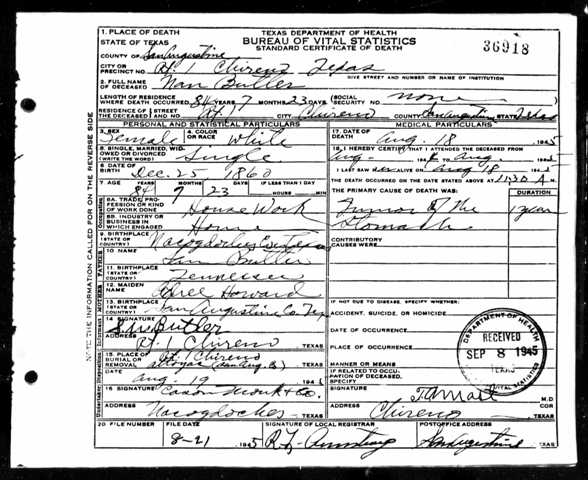 1. PLACE OF DEATH
STATE OF TEXAS
TEXAS DEPARTMENT OF HEALTH
BUREAU OF VITAL STATISTICS
STANDARD CERTIFICATE OF DEATH
36918
COUNTY OF San Augustine
CITY OR PRECINCT NO. Rt 1 Chireno, Texas
GIVE STREET AND NUMBER OR NAME OF INSTITUTION
2. FULL NAME OF DECEASED Nan Butler
LENGTH OF RESIDENCE WHERE DEATH OCCURRED 84 YRS 7 MONTHS 23 DAYS (SOCIAL SECURITY NO. non
RESIDENCE OF THE DECEASED Rt 1 CITY Chireno COUNTY San Augustine STATE Texas
PERSONAL AND STATISTICAL PARTICULARS
MEDICAL PARTICULARS
3. SEX Female 4. COLOR OR RACE White
17. DATE OF DEATH Aug. 18 1945
5. SINGLE, MARRIED, WIDOWED OR DIVORCED (WRITE THE WORD) Single
18. I HEREBY CERTIFY THAT I ATTENDED THE DECEASED FROM
Aug Aug.
6. DATE OF BIRTH Dec. 25, 1860
I LAST SAW ALIVE ON Aug 18
7. AGE 84 YEARS 7 MONTHS 23 DAYS IF LESS THAN 1 DAY
THE DEATH OCCURRED ON THE DATE STATED ABOVE AT 11:30 A. M
THE PRIMARY CAUSE OF DEATH WAS: DURATION
8A. TRADE, PROFESSION OR KIND OF WORK DONE House Work
Tumor of the Stomach 1 year
8B. INDUSTRY OR BUSINESS IN WHICH ENGAGED Home
9. BIRTHPLACE (STATE OR COUNTRY) Nacogdoches Co. Texas
CONTRIBUTORY CAUSES WERE:
10. NAME Butler
11. BIRTHPLACE (STATE OR COUNTRY) Tennessee
12. MAIDEN NAME Howard
IF NOT DUE TO DISEASE, SPECIFY:
13. BIRTHPLACE (STATE OR COUNTRY) San Augustine Co. Tex
ACCIDENT, SUICIDE, OR HOMICIDE
14. SIGNATURE Butler
DATE OF OCCURRENCE
ADDRESS Rt. 1 Chireno, TEXAS
PLACE OF OCCURRENCE
15. PLACE OF BURIAL OR REMOVAL Rt 1 Chireno TEXAS
MANNER OR MEANS
DATE Aug 19
IF RELATED TO OCCUPATION OF DECEASED, SPECIFY
16. SIGNATURE Cason Monk & Co.
SIGNATURE M.D
ADDRESS Nacogdoches TEXAS
ADDRESS Chireno TEXAS
20. FILE NUMBER FILE DATE SIGNATURE OF LOCAL REGISTRAR POSTOFFICE ADDRESS
8-21 1945 San Augustine TEXAS
DEPARTMENT OF HEALTH
RECEIVED
SEP 8 1945
TEXAS
VITAL STATISTICS
NOTE THE INFORMATION CALLED FOR ON THE REVERSE SIDE